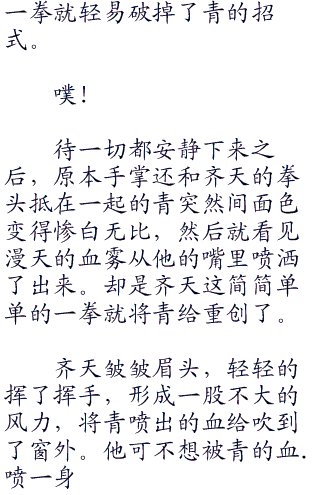 一拳就轻易破掉了青的招
式。
噗！
待一切都安静下来之
后，原本手掌还和齐天的拳
头抵在一起的青突然间面色
变得惨白无比，然后就看见
漫天的血雾从他的嘴里喷洒
了出来。却是齐天这简简单
单的一拳就将青给重创了。
齐天皱皱眉头，轻轻的
挥了挥手，形成一股不大的
风力，将青喷出的血给吹到
了窗外。他可不想被青的血.
喷一身